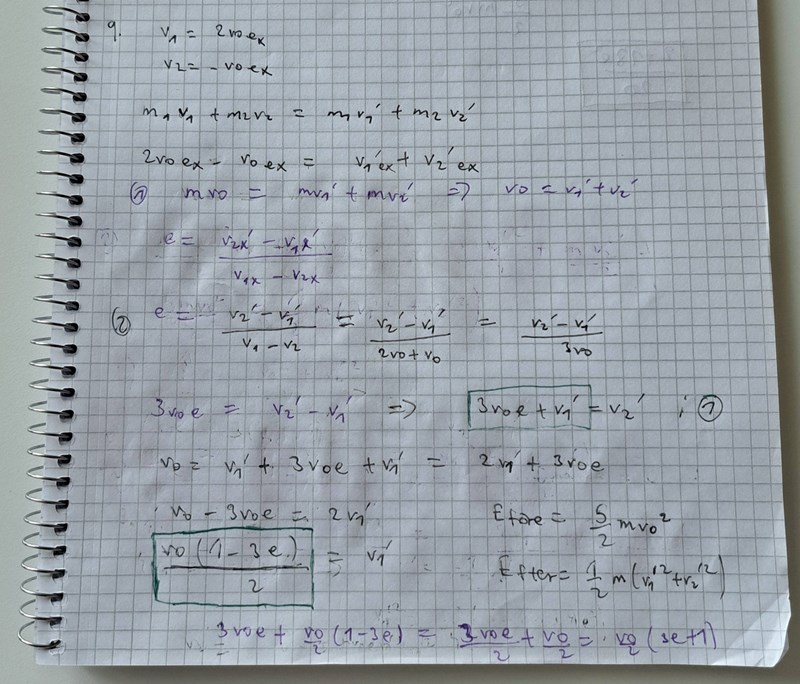 9. v₁ = 2v₀eₓ
v₂ = -v₀eₓ
m₁v₁ + m₂v₂ = m₁v₁' + m₂v₂'
2v₀eₓ - v₀eₓ = v₁'eₓ + v₂'eₓ
① mv₀ = mv₁' + mv₂' => v₀ = v₁' + v₂'
e = (v₂ₓ' - v₁ₓ')/(v₁ₓ - v₂ₓ)
② e = (v₂' - v₁')/(v₁ - v₂) = (v₂' - v₁')/(2v₀ + v₀) = (v₂' - v₁')/(3v₀)
3v₀e = v₂' - v₁' => 3v₀e + v₁' = v₂' ; ①
v₀ = v₁' + 3v₀e + v₁' = 2v₁' + 3v₀e
v₀ - 3v₀e = 2v₁'
Eföre = 5/2 mv₀²
v₀(1 - 3e)/2 = v₁'
Efter = 1/2 m(v₁'² + v₂'²)
3v₀e + v₀/2 (1-3e) = 3v₀e/2 + v₀/2 = v₀/2 (3e+1)